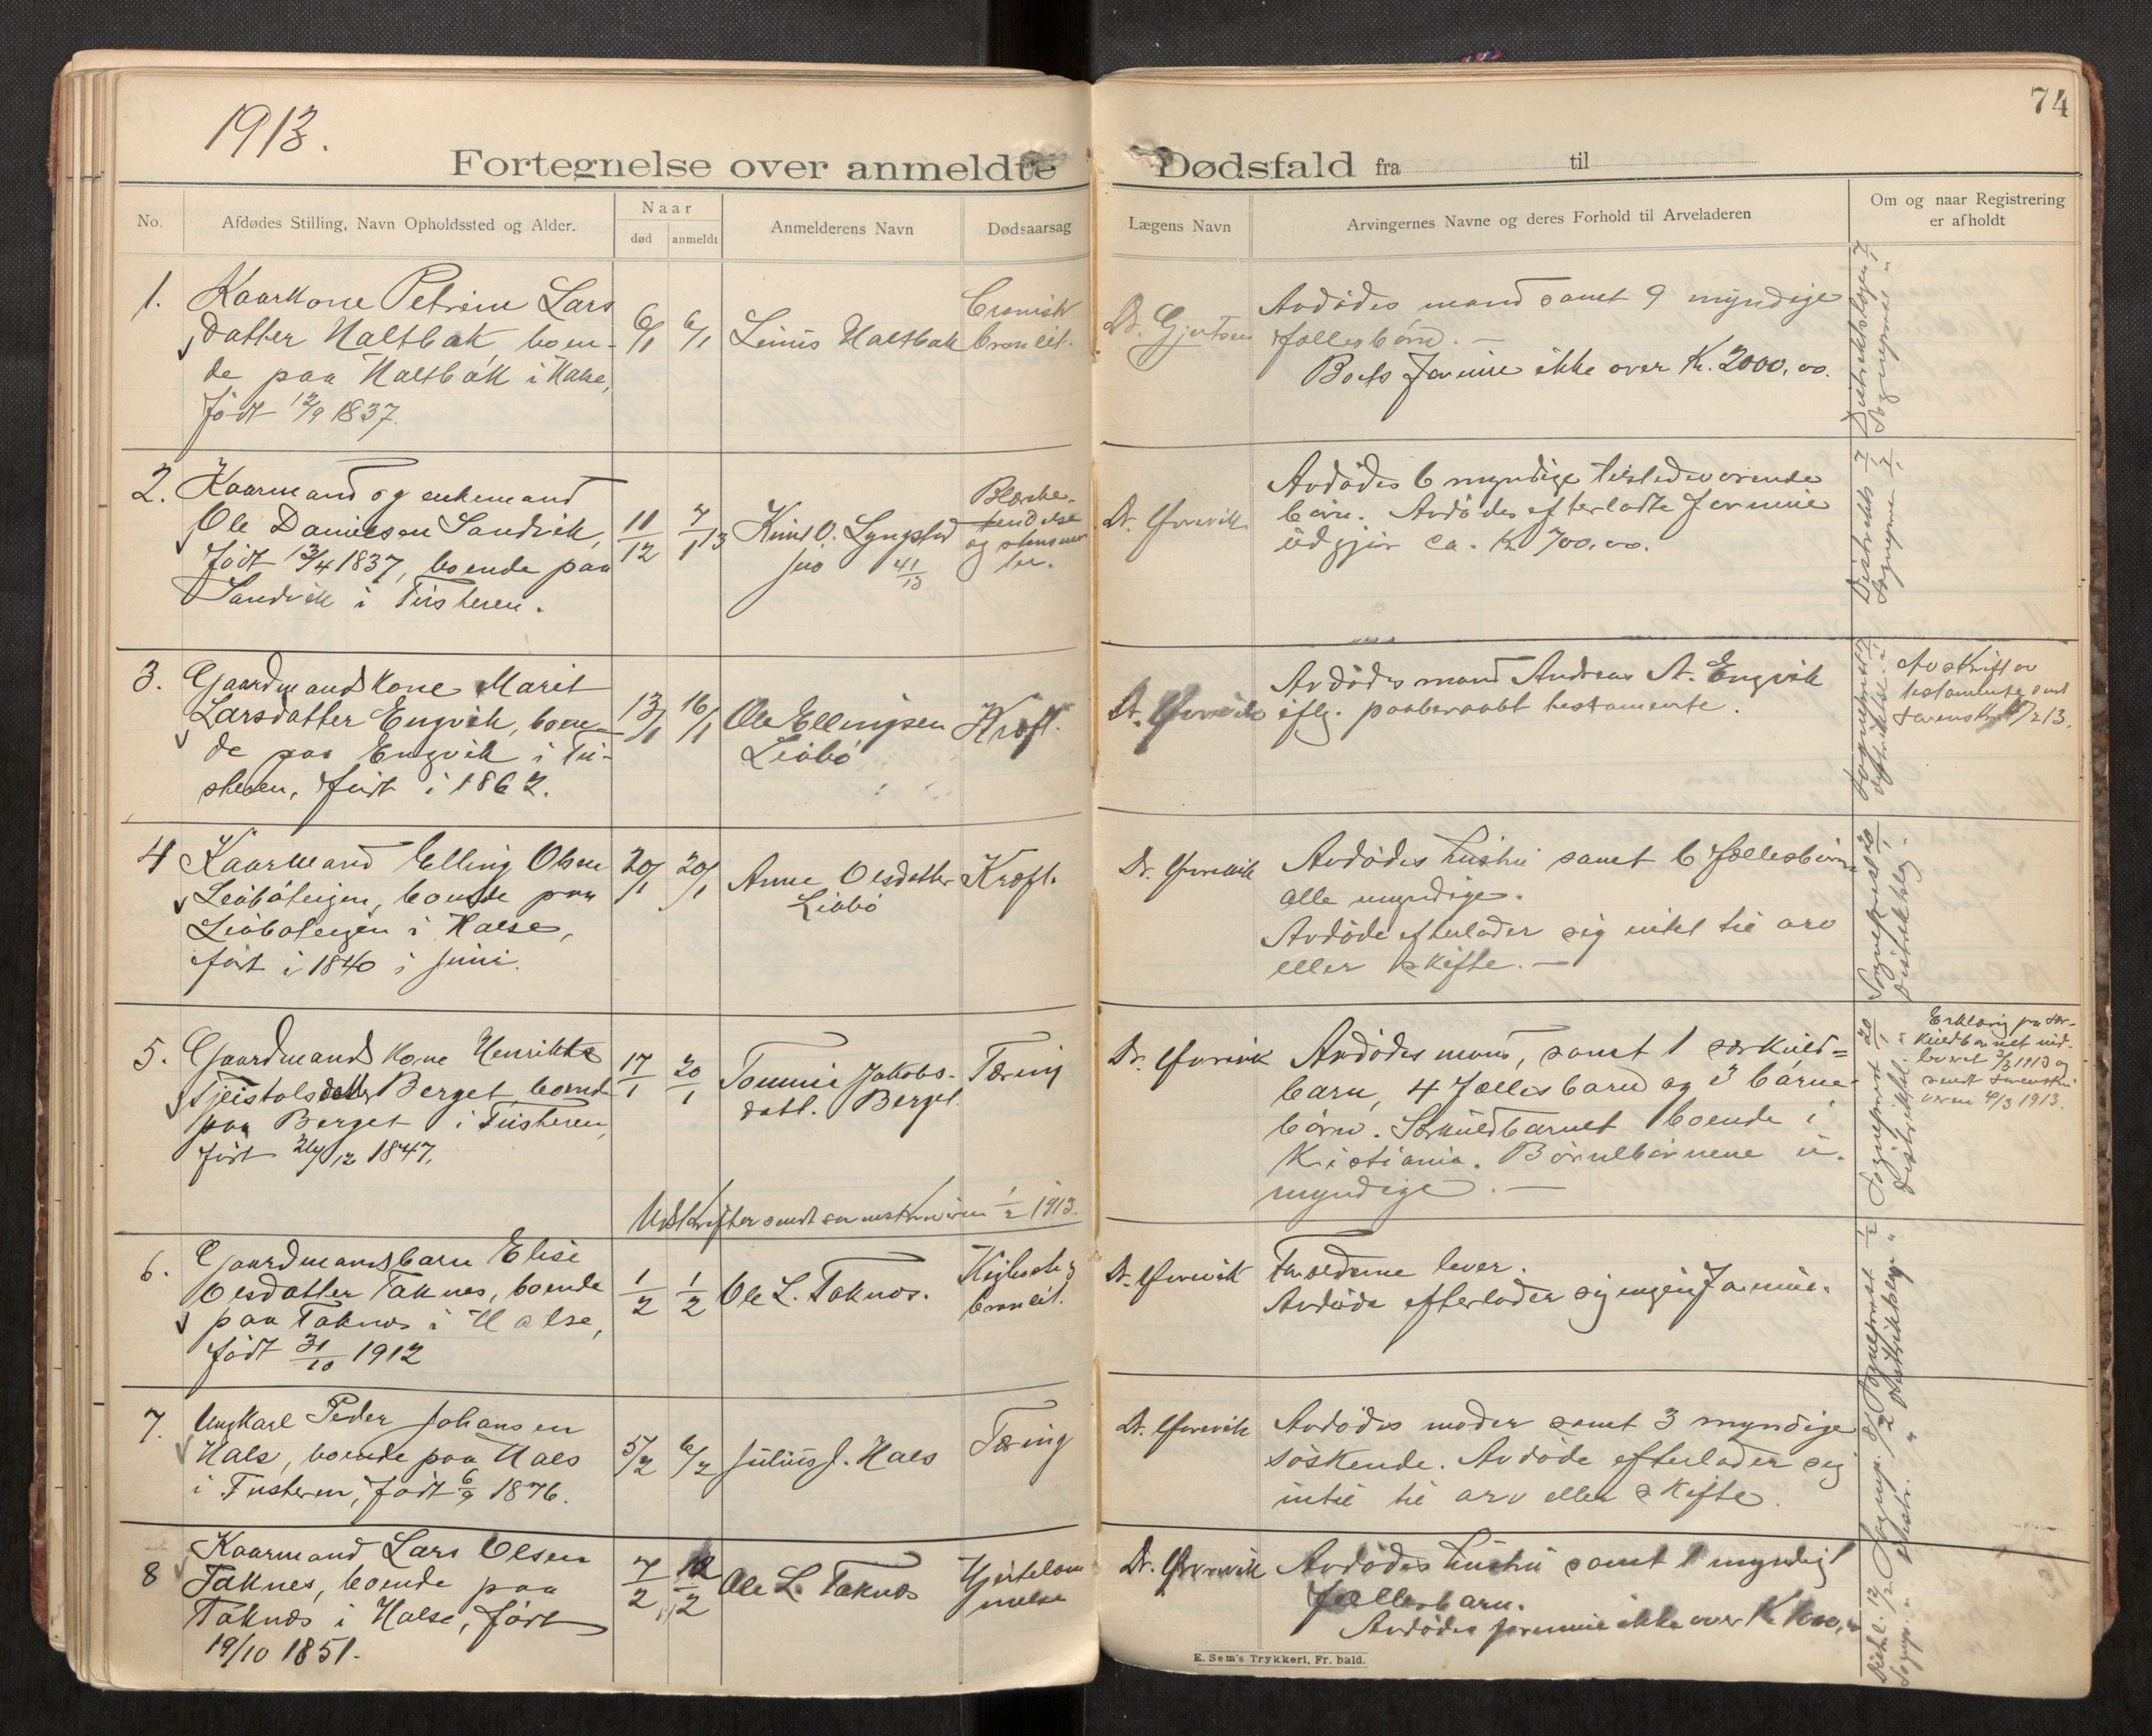 1913.
74
Fortegnelse over anmeldte Dødsfald fra til
No.
Afdødes Stilling, Navn Opholdssted og Alder.
Naar
død
anmeldt
Anmelderens Navn
Dødsaarsag
Lægens Navn
Arvingernes Navne og deres Forhold til Arveladeren
Om og naar Registrering
er afholdt
1.
Kaarkone Petrine Lars
datter Haltbak boen-
de paa Haltbak i Halse,
født 12/9 1837.
6/1
6/1
Linus Haltbak
Cronisk
bronkit.
Dr. Gjertsen
Avdødes mand samt 9 myndige
fællesbørn. —
Boets formue ikke over Kr. 2000,00.
2.
Kaarmand og enkemand
Ole Danielsen Sandvik,
født 13/4 1837, boende paa
Sandvik i Tusteren.
11/12
7/1 13
Knut O. Lyngstad
Blære-
og
Avdødes 6 myndige tilstedeværende
børn. Avdødes efterladte formue
udgjør ca. Kr 700,00.
3.
Gaardmandskone Marit
Larsdatter Engvik, boen-
de paa Engvik i Tu-
steren, født i 1862.
13/1
16/1
Ole Ellingsen
Leibø
Kræft.
Avdødes mand Andreas A. Engvik
iflg. paaberaabt testamente.
Avskrift av
testamente sendt
4
Kaarmand Elling Olsen
Leibøteigen, boende paa
Leiboteigen i Halse,
født i 1840 i juni.
20/1
20/1
Anne Olsdatter
Leibø
Kræft.
Avdødes hustru samt 6 fællesbørn
alle myndige.
Avdøde efterlader sig intet til arv
eller skifte. —
5.
Gaardmandskone Henrikke
Tjeistolsdatter Berget, boend
paa Berget i Tusteren,
født 24/12 1847.
17/1
20/1
Tommine Jakobs-
datt. Berget.
Tæring
Avdødes mand, samt 1 særkuld=
barn, 4 fællesbarn og 3 barne-
børn. Særkuldbarnet boende i
Kristiania. Børnebørnene u-
myndige. —
Erklæring fra sær-
kuldbarnet ind-
leveret 3/3 1913 og
sendt
4/3 1913.
Utskrifter sendt sorenskriveren 1/2 1913.
6.
Gaardmandsbarn Elise
Olsdatter Taknes, boende
paa Taknes i Halse,
født 31/10 1912
1/2
1/2
Ole L. Taknes.
Kighoste
bronkit.
Forældrene lever.
Avdøde efterlader sig ingen formue.
7.
Ungkarl Peder Johansen
Hals, boende paa Hals
i Tusteren, født 6/9 1876.
5/2
6/2
Julius J. Hals
Tæring
Avdødes moder samt 3 myndige
søskende. Avdøde efterlader sig
intet til arv eller skifte.
8
Kaarmand Lars Olsen
Taknes, boende paa
Taknes i Halse, født
19/10 1851.
7/2
Ole L. Taknes
Hjertelam
melse
Avdødes hustru samt 1 myndigt
fællesbarn.
Avdødes formue ikke over Kr.
E. Sem's Trykkeri, Fr. hald.